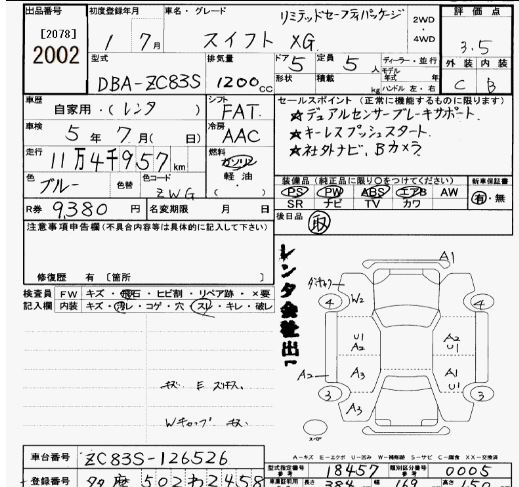 出品番号 初度登録年月 車名・グレード リミテッドセーフティパッケージ 2WD ・ 4WD 評価点
[2078] 1年 7月 スイフト XG 3.5
2002 型式 排気量 ドア 定員 ディーラー・並行 外装 内装
DBA-ZC83S 1200cc 5 5人 形状 積載 kg 年式 年 ハンドル 左・右 C B
車歴 自家用・(レンタ) シフト FAT セールスポイント(正常に機能するものに限ります)
車検 5年 7月( 日) 冷房 AAC ★デュアルセンサーブレーキサポート.
★キーレスプッシュスタート.
走行 11万4千957km 燃料 ガソリン 軽油 ★社外ナビ, Bカメラ
色 ブルー 色替 色コード ZWG 装備品(純正品に限り○をつけてください) 新車保証書
PS PW ABS エアB AW 有・無
SR ナビ TV カワ
R券 9,380円 名変期限 月 日 後日品 取
注意事項申告欄(不具合内容等は具体的に記入して下さい)
修復歴 有 〔箇所 〕
レンタ会社出し
検査員 FW キズ・飛石・ヒビ割・リペア跡・×要
記入欄 内装 キズ・汚レ・コゲ・穴・スレ・キレ・破レ
A1
W2
4 4
U1 A2 A2 U1
A2 A3 A1 U1
3 3
A3
スペア
A−キズ E−エクボ U−凹み W−補修跡 S−サビ C−腐食 XX−交換済
車台番号 ZC83S-126526
型式指定番号 参考 18457 類別区分番号 参考 0005
登録番号 502わ2458
長さ 384 幅 169 高さ 150